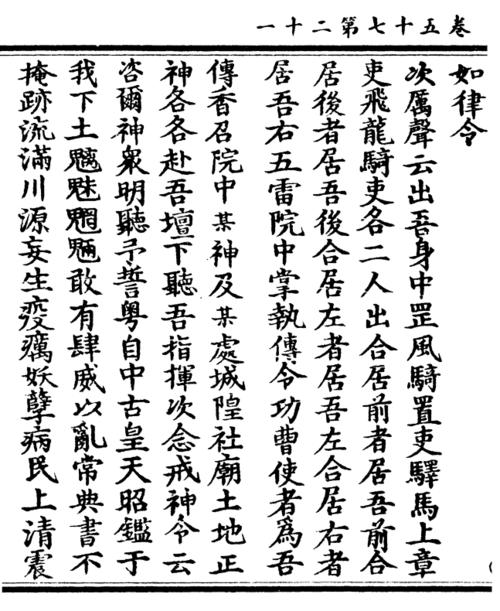 卷五十七第二十一
如律令
次厲聲云出吾身中罡風騎置吏驛馬上章
吏飛龍騎吏各二人出合居前者居吾前合
居後者居吾後合居左者居吾左合居右者
居吾右五雷院中掌執傳令功曹使者為吾
傳香召院中某神及某處城隍社廟土地正
神各各赴吾壇下聽吾指揮次念戒神令云
咨爾神眾明聽予誓粵自中古皇天昭鑑于
我下土魑魅魍魎敢有肆威以亂常典書不
掩跡流滿川源妄生疫癘妖孽病民上清震